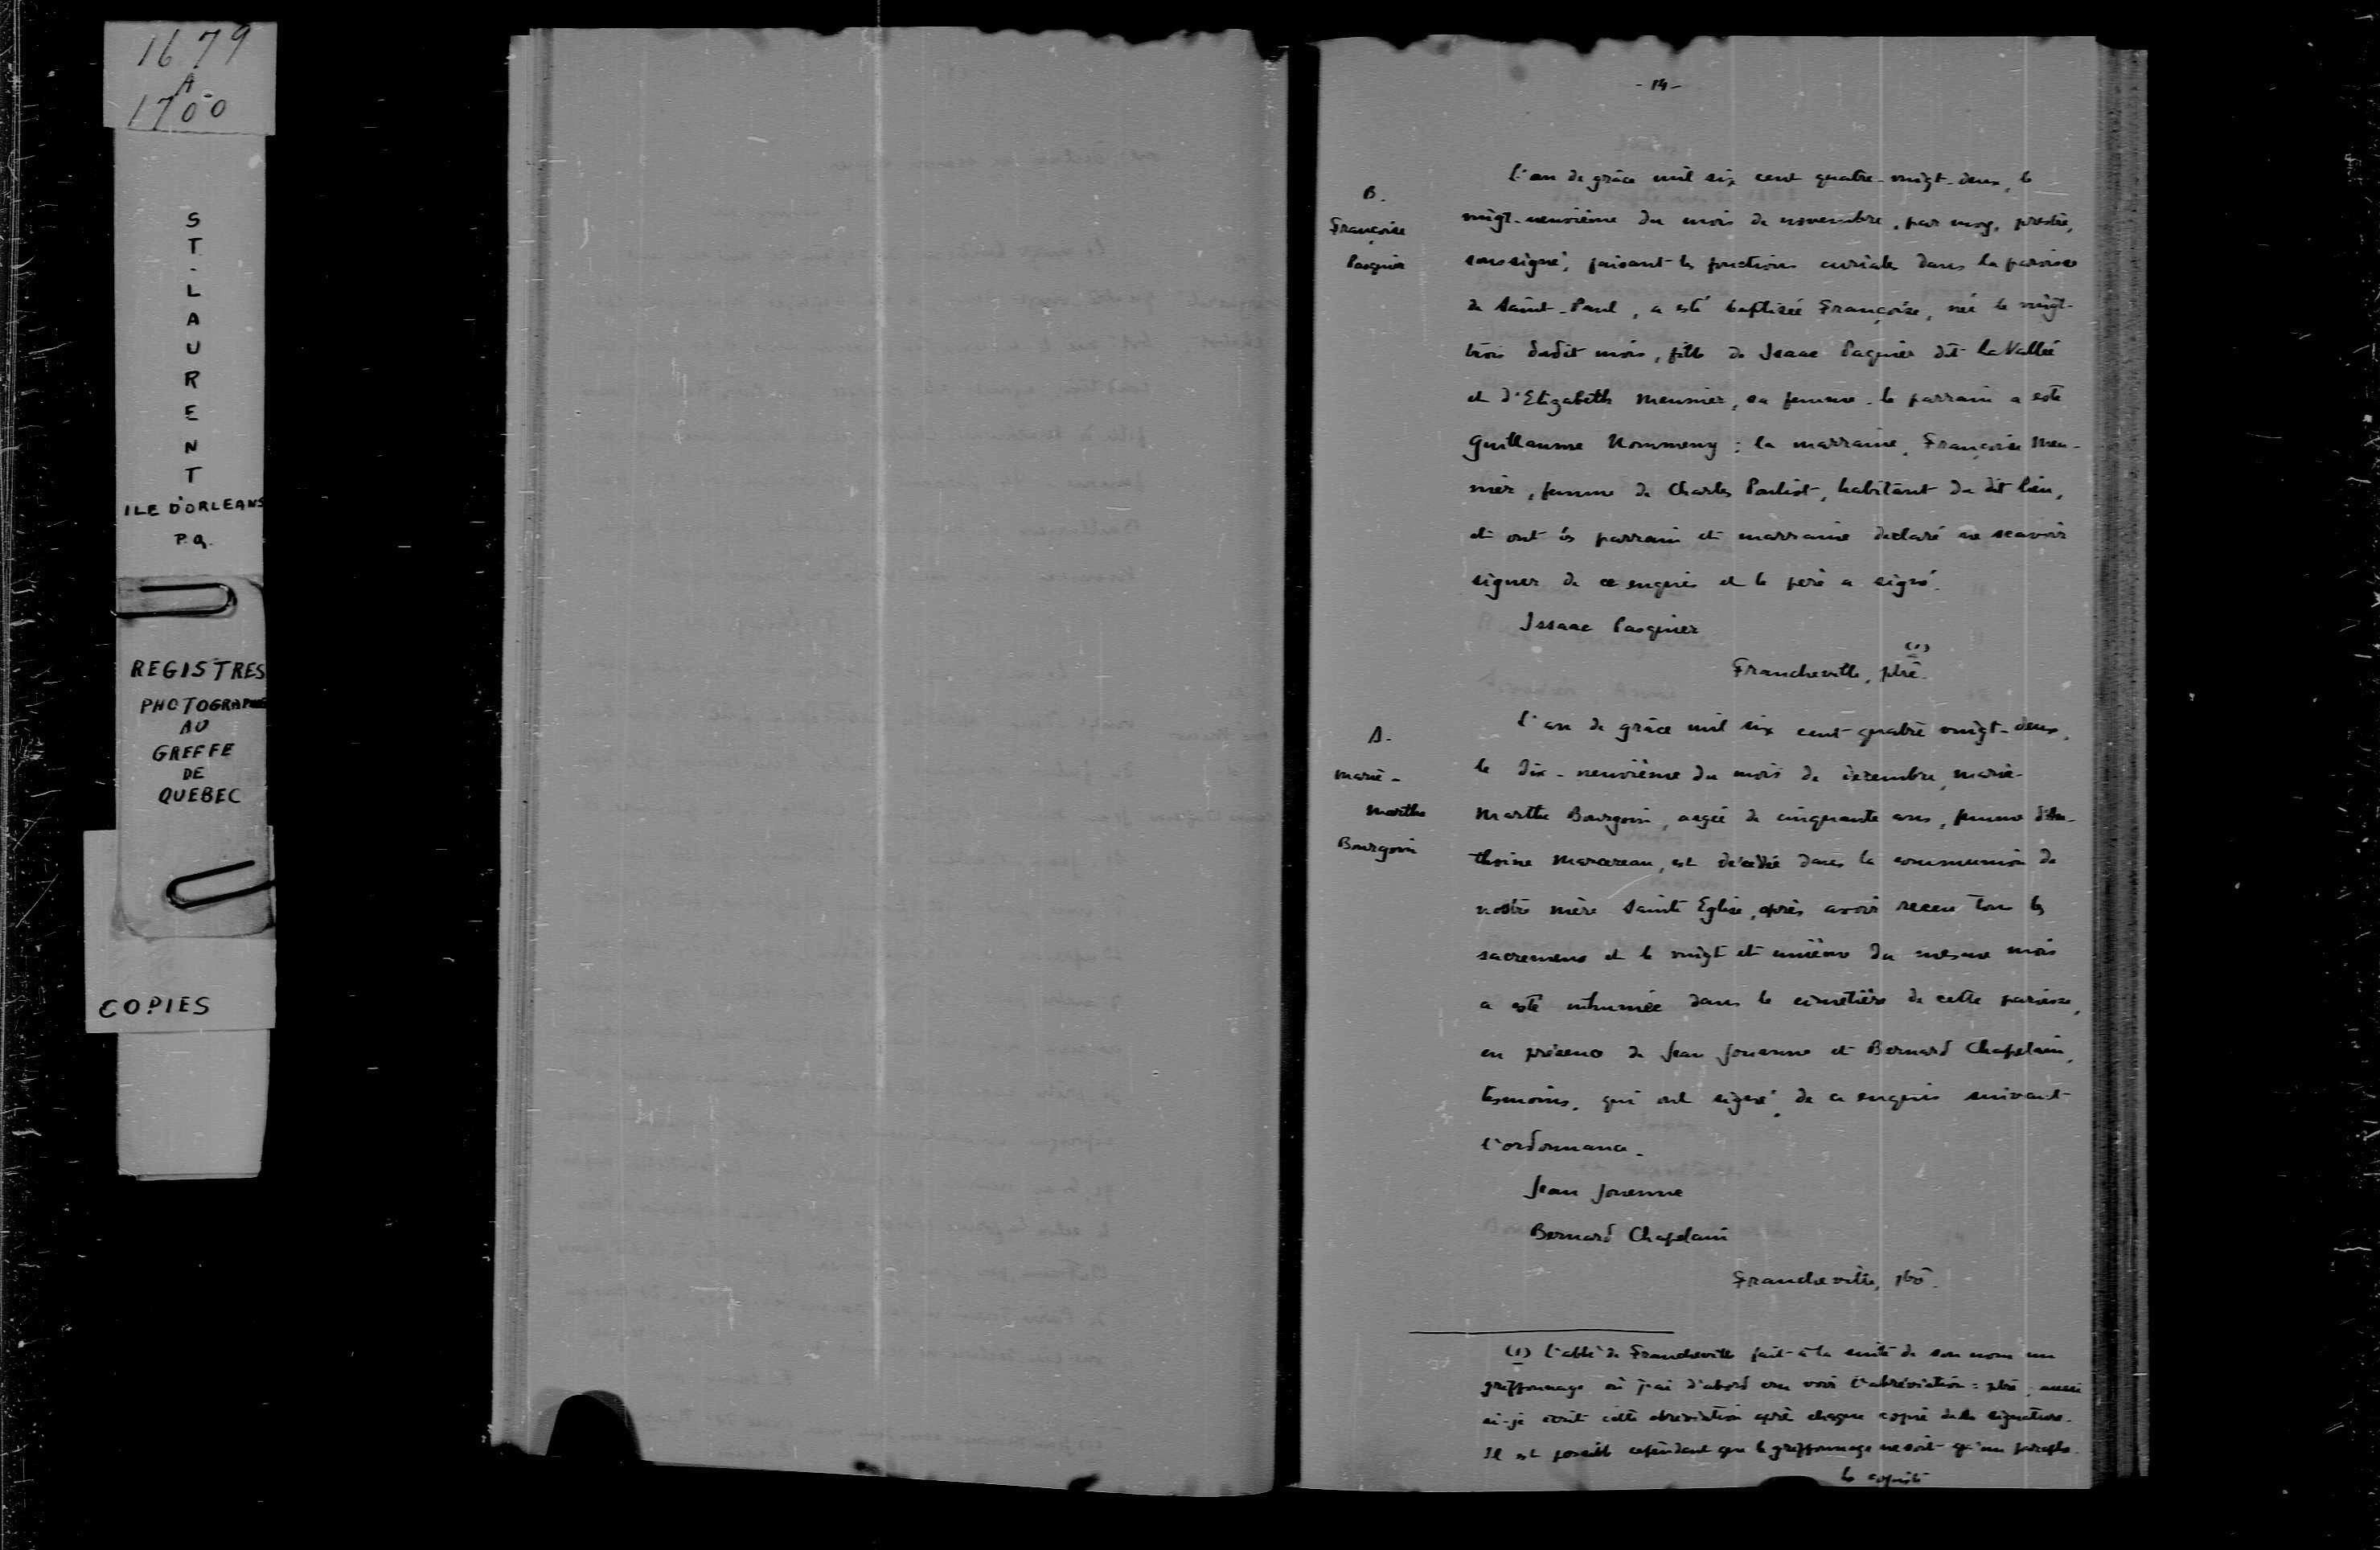 1679
A
1700
ST-LAURENT
ILE D'ORLEANS
P.Q.
REGISTRES
PHOTOGRAPHIÉ
AU
GREFFE
DE
QUEBEC
COPIES
- 14 -
B.
Françoise
Pasquier
L'an de grâce mil six cent quatre-vingt-deux, le
vingt-neuvième du mois de novembre, par moy, prestre,
soussigné, faisant les fonctions curiales dans la paroisse
de Saint-Paul, a esté baptisée Françoise, née le vingt-
trois dudit mois, fille de Isaac Paquier dit LaVallée
et d'Elizabeth Meusnier, sa femme. le parrain a esté
Guillaume Nommeny : la marraine, Françoise Meu-
nier, femme de Charles Pouliot, habitant du dit lieu,
et ont les parrain et marraine declaré ne scavoir
signer de ce enquis et le père a signé.
Issaac Pasquier
Francheville, ptre. (1)
S.
Marie-
Marthe
Bourgoin
L'an de grâce mil six cent quatre vingt-deux,
le dix-neuvième du mois de decembre, Marie-
Marthe Bourgoin, aagée de cinquante ans, femme d'An-
thoine Marcereau, est décédée dans la communion de
nostre mère Sainte Eglise, après avoir receu tous les
sacremens et le vingt et unième du mesme mois
a esté inhumée dans le cimetière de cette paroisse,
en présence de Jean Jouanne et Bernard Chapelain,
tesmoins, qui ont signé, de ce enquis suivant
l'ordonnance.
Jean Jouenne
Bernard Chapelain
Francheville, ptre.
(1) L'abbé de Francheville fait à la suite de son nom un
griffonnage où j'ai d'abord cru voir l'abréviation : ptre, aussi
ai-je écrit cette abréviation après chaque copie de la signature.
Il est possible cependant que le griffonnage ne soit qu'un paraphe.
le copiste